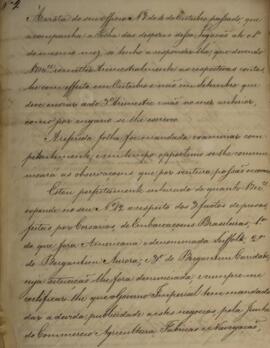 Nº 2
A vista do seu officio Nº 3 de 4 de Outubro passado, que
acompanha a folha das despezas dessa Legação até o 1º
do mesmo mez, só tenho a responder-lhe, que devendo
V M.ce remetter trimestralmente as respectivas contas,
foi com effeito em Outubro e não em Setembro que
decorreu o 3º trimestre e não no mez anterior,
como por engano se lhe escreveo.
A referida folha foi mandada examinar com-
petentemente, e em tempo opportuno se lhe commu-
nicará as observaçoens que por ventura possão occorrer.
Estou perfeitamente inteirado de quanto V M.ce
expende no seu Nº 12 a respeito das 3 fustes de prezas
feitas por Corsarios de Embarcaçoens Brasileiras, 1ª
do que fora Americana e denominada Suffolk, 2ª
do Bergantim Aurora, e 3ª do Bergantim Caridade,
cuja actuação lhe fora denunciada, e cumpre-me
certificar-lhe que o Governo Imperial tem mandado
dar a devida publicidade a estes negocios, pela Junta
do Commercio, Agricultura, Fabricas e Navegação,